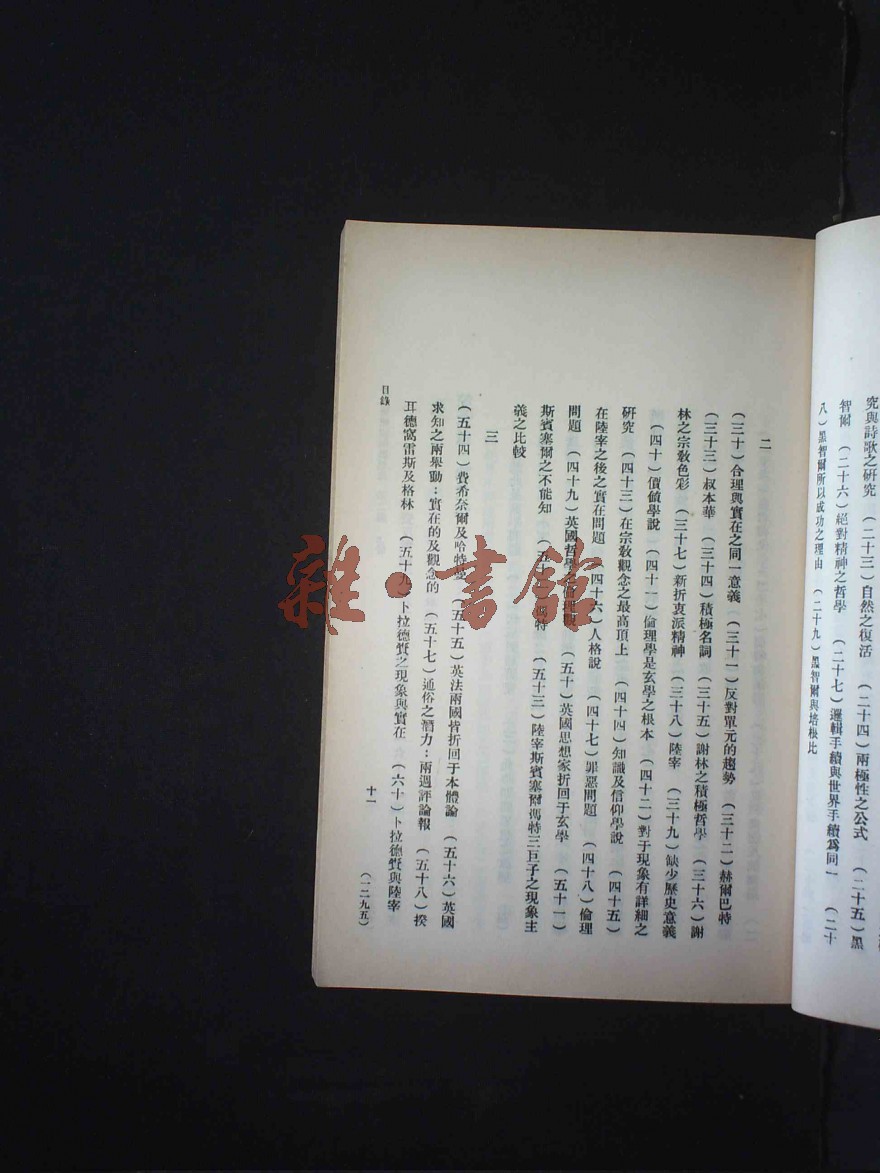 究與詩歌之研究　(二十三)自然之復活　(二十四)兩極性之公式　(二十五)黑
智爾　(二十六)絕對精神之哲學　(二十七)邏輯手續與世界手續爲同一　(二十
八)黑智爾所以成功之理由　(二十九)黑智爾與培根比
二
(三十)合理與實在之同一意義　(三十一)反對單元的趨勢　(三十二)赫爾巴特
(三十三)叔本華　(三十四)積極名詞　(三十五)謝林之積極哲學　(三十六)謝
林之宗教色彩　(三十七)新折衷派精神　(三十八)陸宰　(三十九)缺少歷史意義
(四十)價値學說　(四十一)倫理學是玄學之根本　(四十二)對于現象有詳細之
研究　(四十三)在宗教觀念之最高頂上　(四十四)知識及信仰學說　(四十五)
在陸宰之後之實在問題　(四十六)人格說　(四十七)罪惡問題　(四十八)倫理
問題　(四十九)英國哲學之　(五十)英國思想家折回于玄學　(五十一)
斯賓塞爾之不能知　(五十二)馮特　(五十三)陸宰斯賓塞爾馮特三巨子之現象主
義之比較
三
(五十四)費希奈爾及哈特曼　(五十五)英法兩國皆折回于本體論　(五十六)英國
求知之兩舉動：實在的及觀念的　(五十七)通俗之潛力：兩週評論報　(五十八)揆
耳德窩雷斯及格林　(五十九)卜拉德賚之現象與實在　(六十)卜拉德賚與陸宰
目錄
十一
(一二九五)
雜·書館